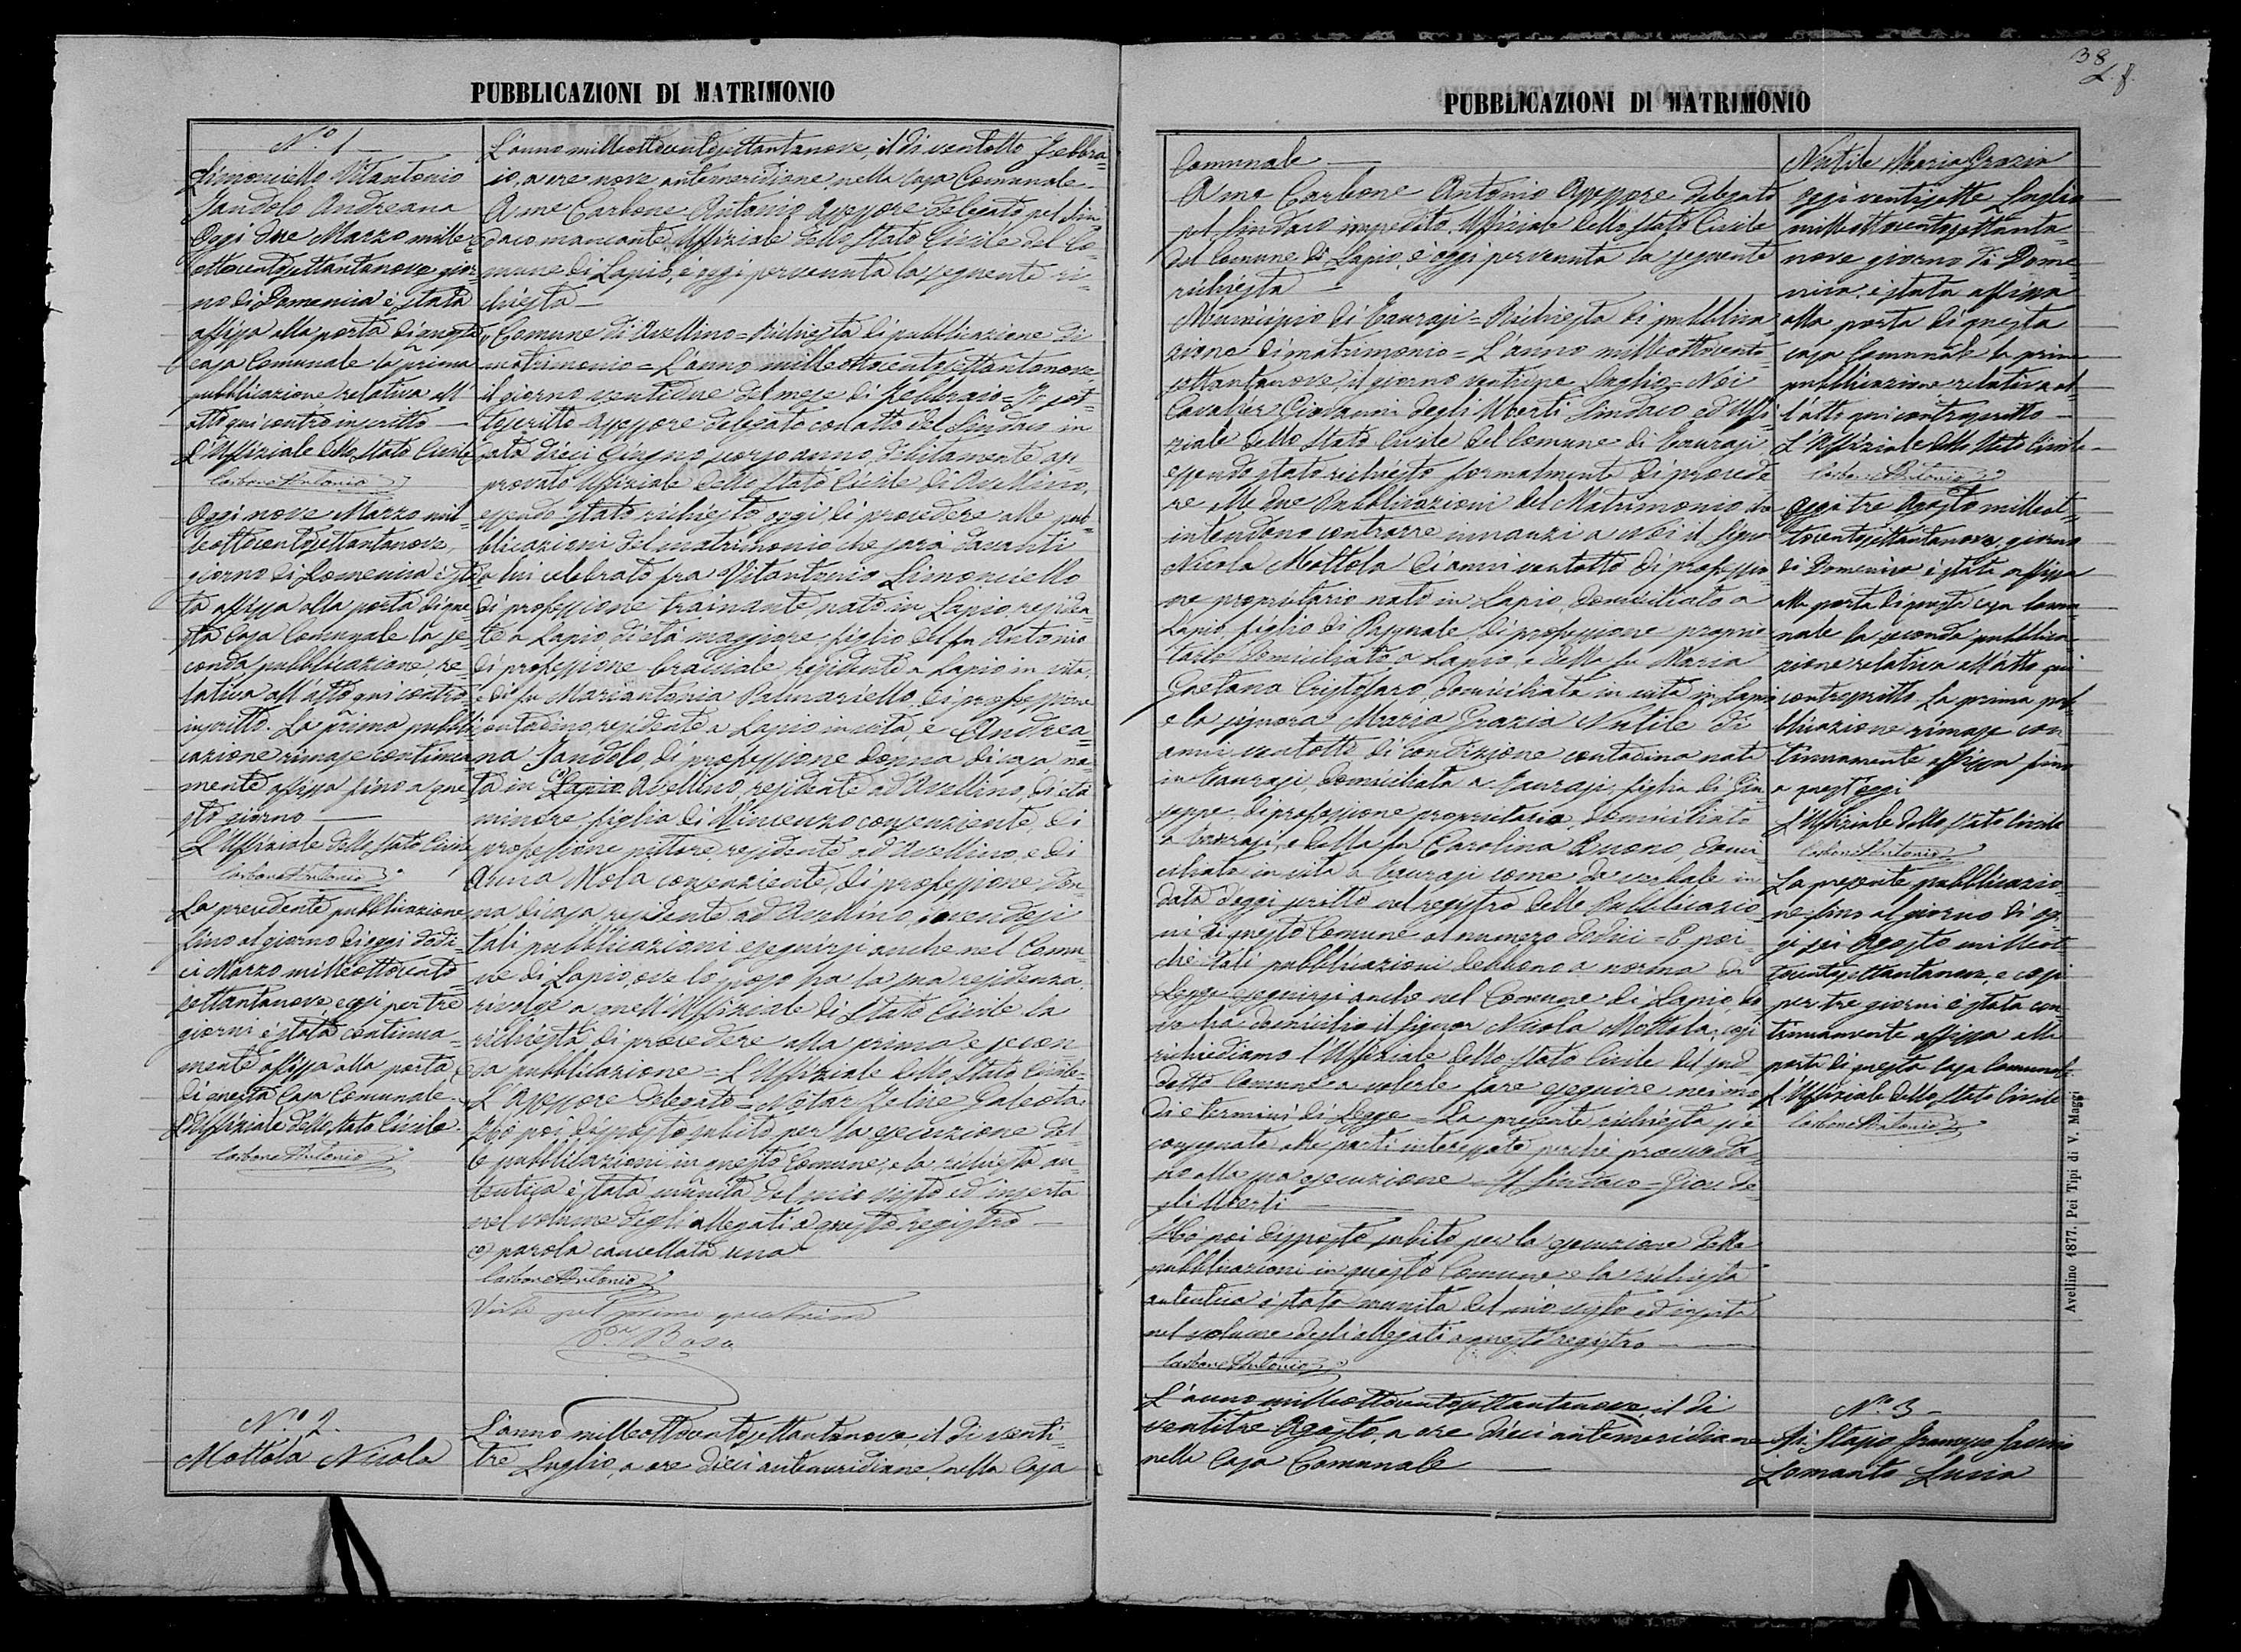 PUBBLICAZIONI DI MATRIMONIO
N.º 1
Limonciello Vitantonio
Iandolo Andreana
Oggi due Marzo mille=
ottocentosettantanove gior=
no di Domenica è stata
affissa alla porta di questa
casa Comunale la prima
pubblicazione relativa all'
atto qui contro inscritto
L'Uffiziale dello Stato Civile
Carbone Antonio
Oggi nove Marzo mil=
leottocentosettantanove,
giorno di Domenica è sta
ta affissa alla porta di que
sta Casa Comunale la se=
conda pubblicazione, re=
lativa all'atto qui contro
inscritto. La prima pubbli
cazione rimase continua
mente affissa fino a que=
sto giorno
L'Uffiziale dello Stato Civile
Carbone Antonio
La precedente pubblicazione
fino al giorno di oggi dodi
ci Marzo milleottocento
settantanove, e così per tre
giorni è stata continua=
mente affissa alla porta
di questa Casa Comunale.
L'Uffiziale dello Stato Civile.
Carbone Antonio
N.º 2.
Mottola Nicola
L'anno milleottocentosettantanove, il dì ventotto Febbra=
io, a ore nove antimeridiane, nella Casa Comunale.
A me Carbone Antonio Assessore delegato pel Sin=
daco mancante, Uffiziale dello Stato Civile del Co=
mune di Lapio, è oggi pervenuta la seguente ri=
chiesta
Comune di Avellino = Richiesta di pubblicazione di
matrimonio = L'anno milleottocentosettantanove
il giorno ventidue del mese di Febbraio = Io sot=
toscritto Assessore delegato con atto del Sindaco in
data dieci Giugno scorso anno, debitamente ap=
provato Uffiziale dello Stato Civile di Avellino,
essendo stato richiesto oggi di procedere alle pub=
blicazioni del matrimonio che sarà davanti
a lui celebrato fra Vitantonio Limonciello
di professione trainante, nato in Lapio, residen
te a Lapio di età maggiore, figlio del fu Antonio
di professione bracciale residente a Lapio in vita,
e di fu Mariantonia Palmariello, di professione
contadina, residente a Lapio in vita, e Andrea=
na Iandolo, di professione donna di casa, na=
ta in Lapio Avellino, residente ad Avellino, di età
minore, figlia di Vincenzo consenziente, di
professione pittore, residente ad Avellino, e di
Anna Mola consenziente, di professione don=
na di casa residente ad Avellino, dovendosi
tali pubblicazioni eseguirsi anche nel Comu=
ne di Lapio, ove lo sposo ha la sua residenza,
rivolge a quell'Uffiziale di Stato Civile la
richiesta di procedere alla prima e secon=
da pubblicazione = L'Uffiziale dello Stato Civile =
L'Assessore delegato = Notar Felice Galeota.
Ho poi disposto subito per la esecuzione del=
le pubblicazioni in questo Comune, e la richiesta au=
tentica è stata munita del mio visto ed inserta
nel volume degli allegati a questo registro
parola cancellata una
Carbone Antonio
L'anno milleottocentosettantanove, il dì venti=
tre Luglio, a ore dieci antimeridiane, nella Casa
38
PUBBLICAZIONI DI MATRIMONIO
Comunale
A me Carbone Antonio Assessore delegato
pel Sindaco impedito, Uffiziale dello Stato Civile
del Comune di Lapio, è oggi pervenuta la seguente
richiesta
Municipio di Taurasi = Richiesta di pubblica=
zione di matrimonio = L'anno milleottocento=
settantanove, il giorno ventitre Luglio = Noi
Cavalier Giovanni degli Uberti Sindaco ed Uffi=
ziale dello Stato Civile del Comune di Taurasi,
essendo stato richiesto formalmente di procede
re alle due Pubblicazioni del Matrimonio che
intendono contrarre innanzi a Noi il Signor
Nicola Mottola di anni ventotto di professio=
ne proprietario nato in Lapio, domiciliato a
Lapio, figlio di Pasquale, di professione proprie
tario domiciliato a Lapio, e della fu Maria
Gaetana Cristofaro, domiciliata in vita in Lapio
e la signora Maria Grazia Nutile di
anni ventotto di condizione contadina nata
in Taurasi, domiciliata a Taurasi, figlia di Giu
seppe di professione proprietario, domiciliato
a Taurasi, e della fu Carolina Buono, domi=
ciliata in vita a Taurasi come da verbale in
data d'oggi scritto nel registro delle Pubblicazio
ni di questo Comune al numero dodici = E poi=
chè tali pubblicazioni debbono a norma di
Legge eseguirsi anche nel Comune di Lapio, do
ve ha domicilio il signor Nicola Mottola, così
richiediamo l'Uffiziale dello Stato Civile del sud=
detto Comune a volerle fare eseguire nei mo=
di e termini di Legge = La presente richiesta si è
consegnata alle parti interessate perchè provveda=
no alla sua esecuzione = Il Sindaco = Giov. de=
gli Uberti
Ho poi disposto subito per la esecuzione delle
pubblicazioni in questo Comune e la richiesta
autentica è stata munita del mio visto ed inserta
nel volume degli allegati a questo registro
Carbone Antonio
L'anno milleottocentosettantanove, il dì
ventitre Agosto, a ore dieci antimeridiane
nella Casa Comunale
Nutile Maria Grazia
Oggi ventisette Luglio
milleottocentosettanta=
nove giorno di Dome=
nica, è stata affissa
alla porta di questa
casa Comunale la prima
pubblicazione relativa al=
l'atto qui controscritto
L'Uffiziale dello Stato Civile
Carbone Antonio
Oggi tre Agosto milleot=
tocentosettantanove, giorno
di Domenica è stata affissa
alla porta di questa casa Comu
nale la seconda pubblica=
zione relativa all'atto qui
controscritto. La prima pub
blicazione rimase con=
tinuamente affissa fino
a quest'oggi
L'Uffiziale dello Stato Civile
Carbone Antonio
La presente pubblicazio
ne fino al giorno di og=
gi sei Agosto milleot
tocentosettantanove, e così
per tre giorni è stata con=
tinuamente affissa alla
porta di questa Casa Comunale
L'Uffiziale dello Stato Civile
Carbone Antonio
N.º 3
Lomanto Lucia
Avellino 1877. Pei Tipi di V. Maggi